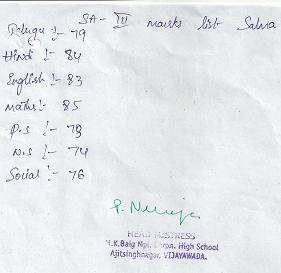 SA - III marks list Salma
Telugu :- 79
Hindi :- 84
English :- 83
Maths :- 85
P.S :- 73
N.S :- 74
Social :- 76
HEAD MISTRESS
M.K.Baig Mpl. Corpn. High School
Ajitsinghnagar, VIJAYAWADA.